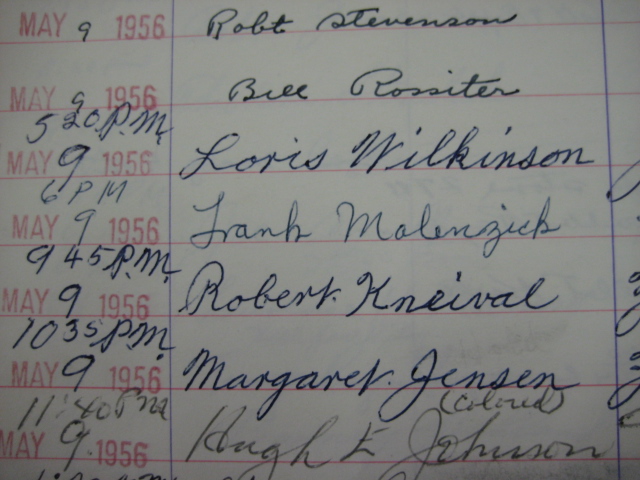 MAY 9 1956 Robt Stevenson
MAY 9 1956 Bill Rossiter
5 20 P.M.
MAY 9 1956 Loris Wilkinson
6 PM
MAY 9 1956 Frank Malenzick
9 45 P.M.
MAY 9 1956 Robert Kneival
10 35 P.M.
MAY 9 1956 Margaret Jensen
11:40 PM (Colored)
MAY 9. 1956 Hugh E Johnson